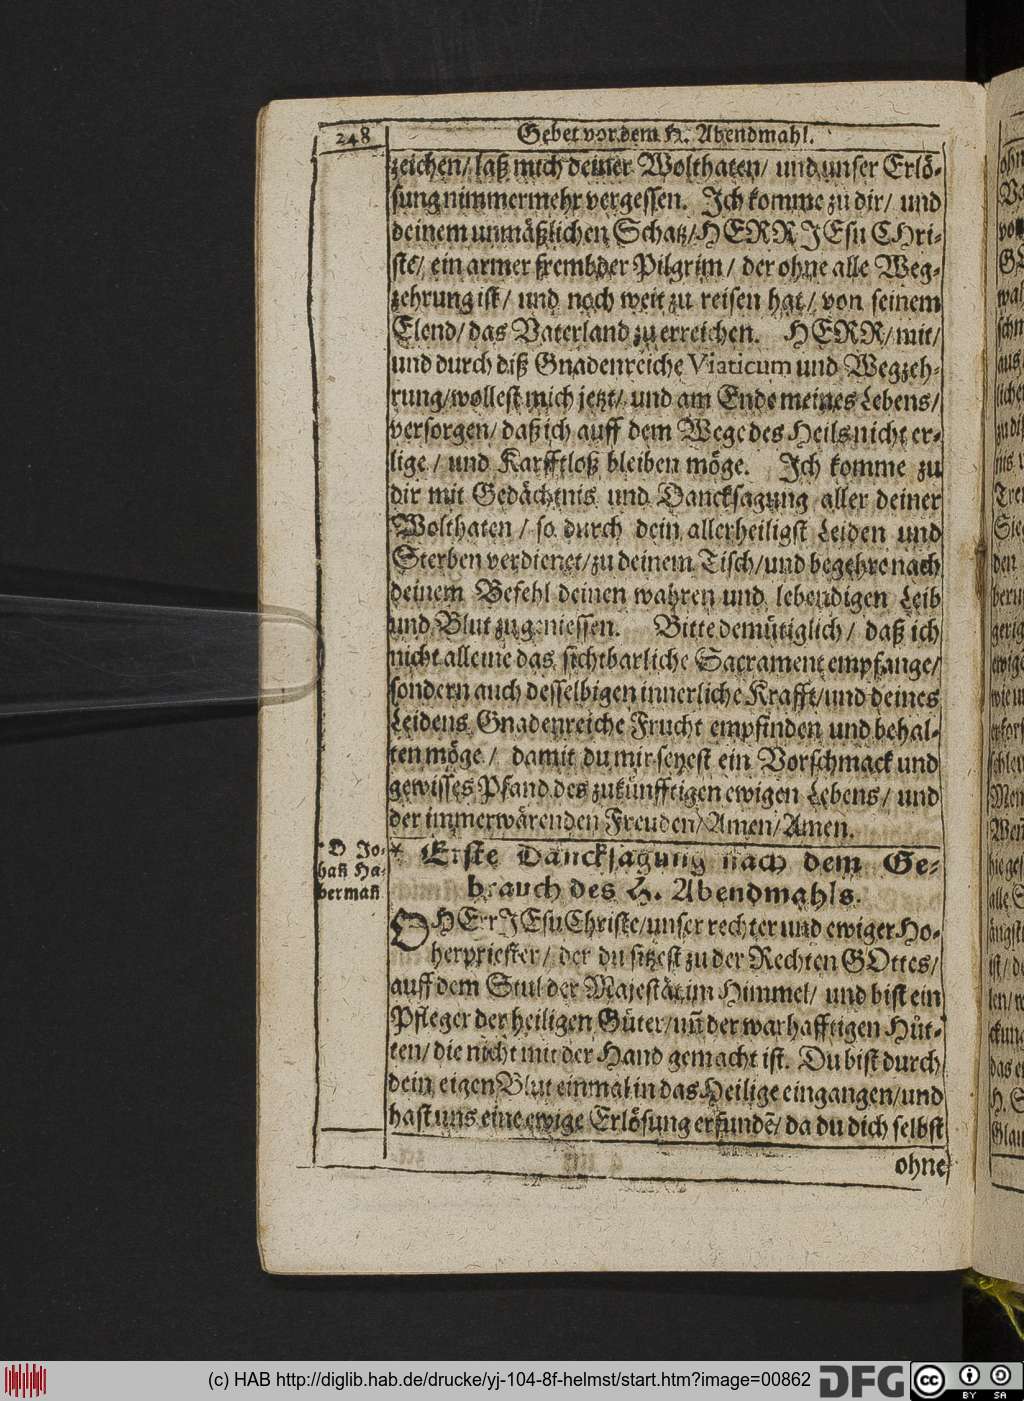 248
Gebet vor dem H. Abendmahl.
zeichen/ laß mich deiner Wolthaten/ und unser Erlö-
sung nimmermehr vergessen. Ich komme zu dir/ und
deinem unmäßlichen Schatz/ HERR JEsu CHri-
ste/ ein armer frembder Pilgrim/ der ohne alle Weg-
zehrung ist/ und noch weit zu reisen hat/ von seinem
Elend/ das Vaterland zu erreichen. HERR/ mit/
und durch diß Gnadenreiche Viaticum und Wegzeh-
rung/ wollest mich jetzt/ und am Ende meines Lebens/
versorgen/ daß ich auff dem Wege des Heils nicht er-
lige/ und Karfftloß bleiben möge. Ich komme zu
dir mit Gedächtnis und Dancksagung aller deiner
Wolthaten/ so durch dein allerheiligst Leiden und
Sterben verdienet/ zu deinem Tisch/ und begehre nach
deinem Befehl deinen wahren und lebendigen Leib
und Blut zu geniessen. Bitte demütiglich/ daß ich
nicht alleine das sichtbarliche Sacrament empfange/
sondern auch desselbigen innerliche Krafft/ und deines
Leidens Gnadenreiche Frucht empfinden und behal-
ten möge/ damit du mir seyest ein Vorschmack und
gewisses Pfand des zukünfftigen ewigen Lebens/ und
der immerwärenden Freuden/ Amen/ Amen.
* D Jo-
hañ Ha-
bermañ
* Erste Dancksagung nach dem Ge-
brauch des H. Abendmahls.
O HErr JEsu Christe/ unser rechter und ewiger Ho-
herpriester/ der du sitzest zu der Rechten GOttes/
auff dem Stul der Majestät im Himmel/ und bist ein
Pfleger der heiligen Güter/ uñ der warhafftigen Hüt-
ten/ die nicht mit der Hand gemacht ist. Du bist durch
dein eigen Blut einmal in das Heilige eingangen/ und
hast uns eine ewige Erlösung erfundẽ/ da du dich selbst
ohne
(c) HAB http://diglib.hab.de/drucke/yj-104-8f-helmst/start.htm?image=00862
DFG
cc BY SA